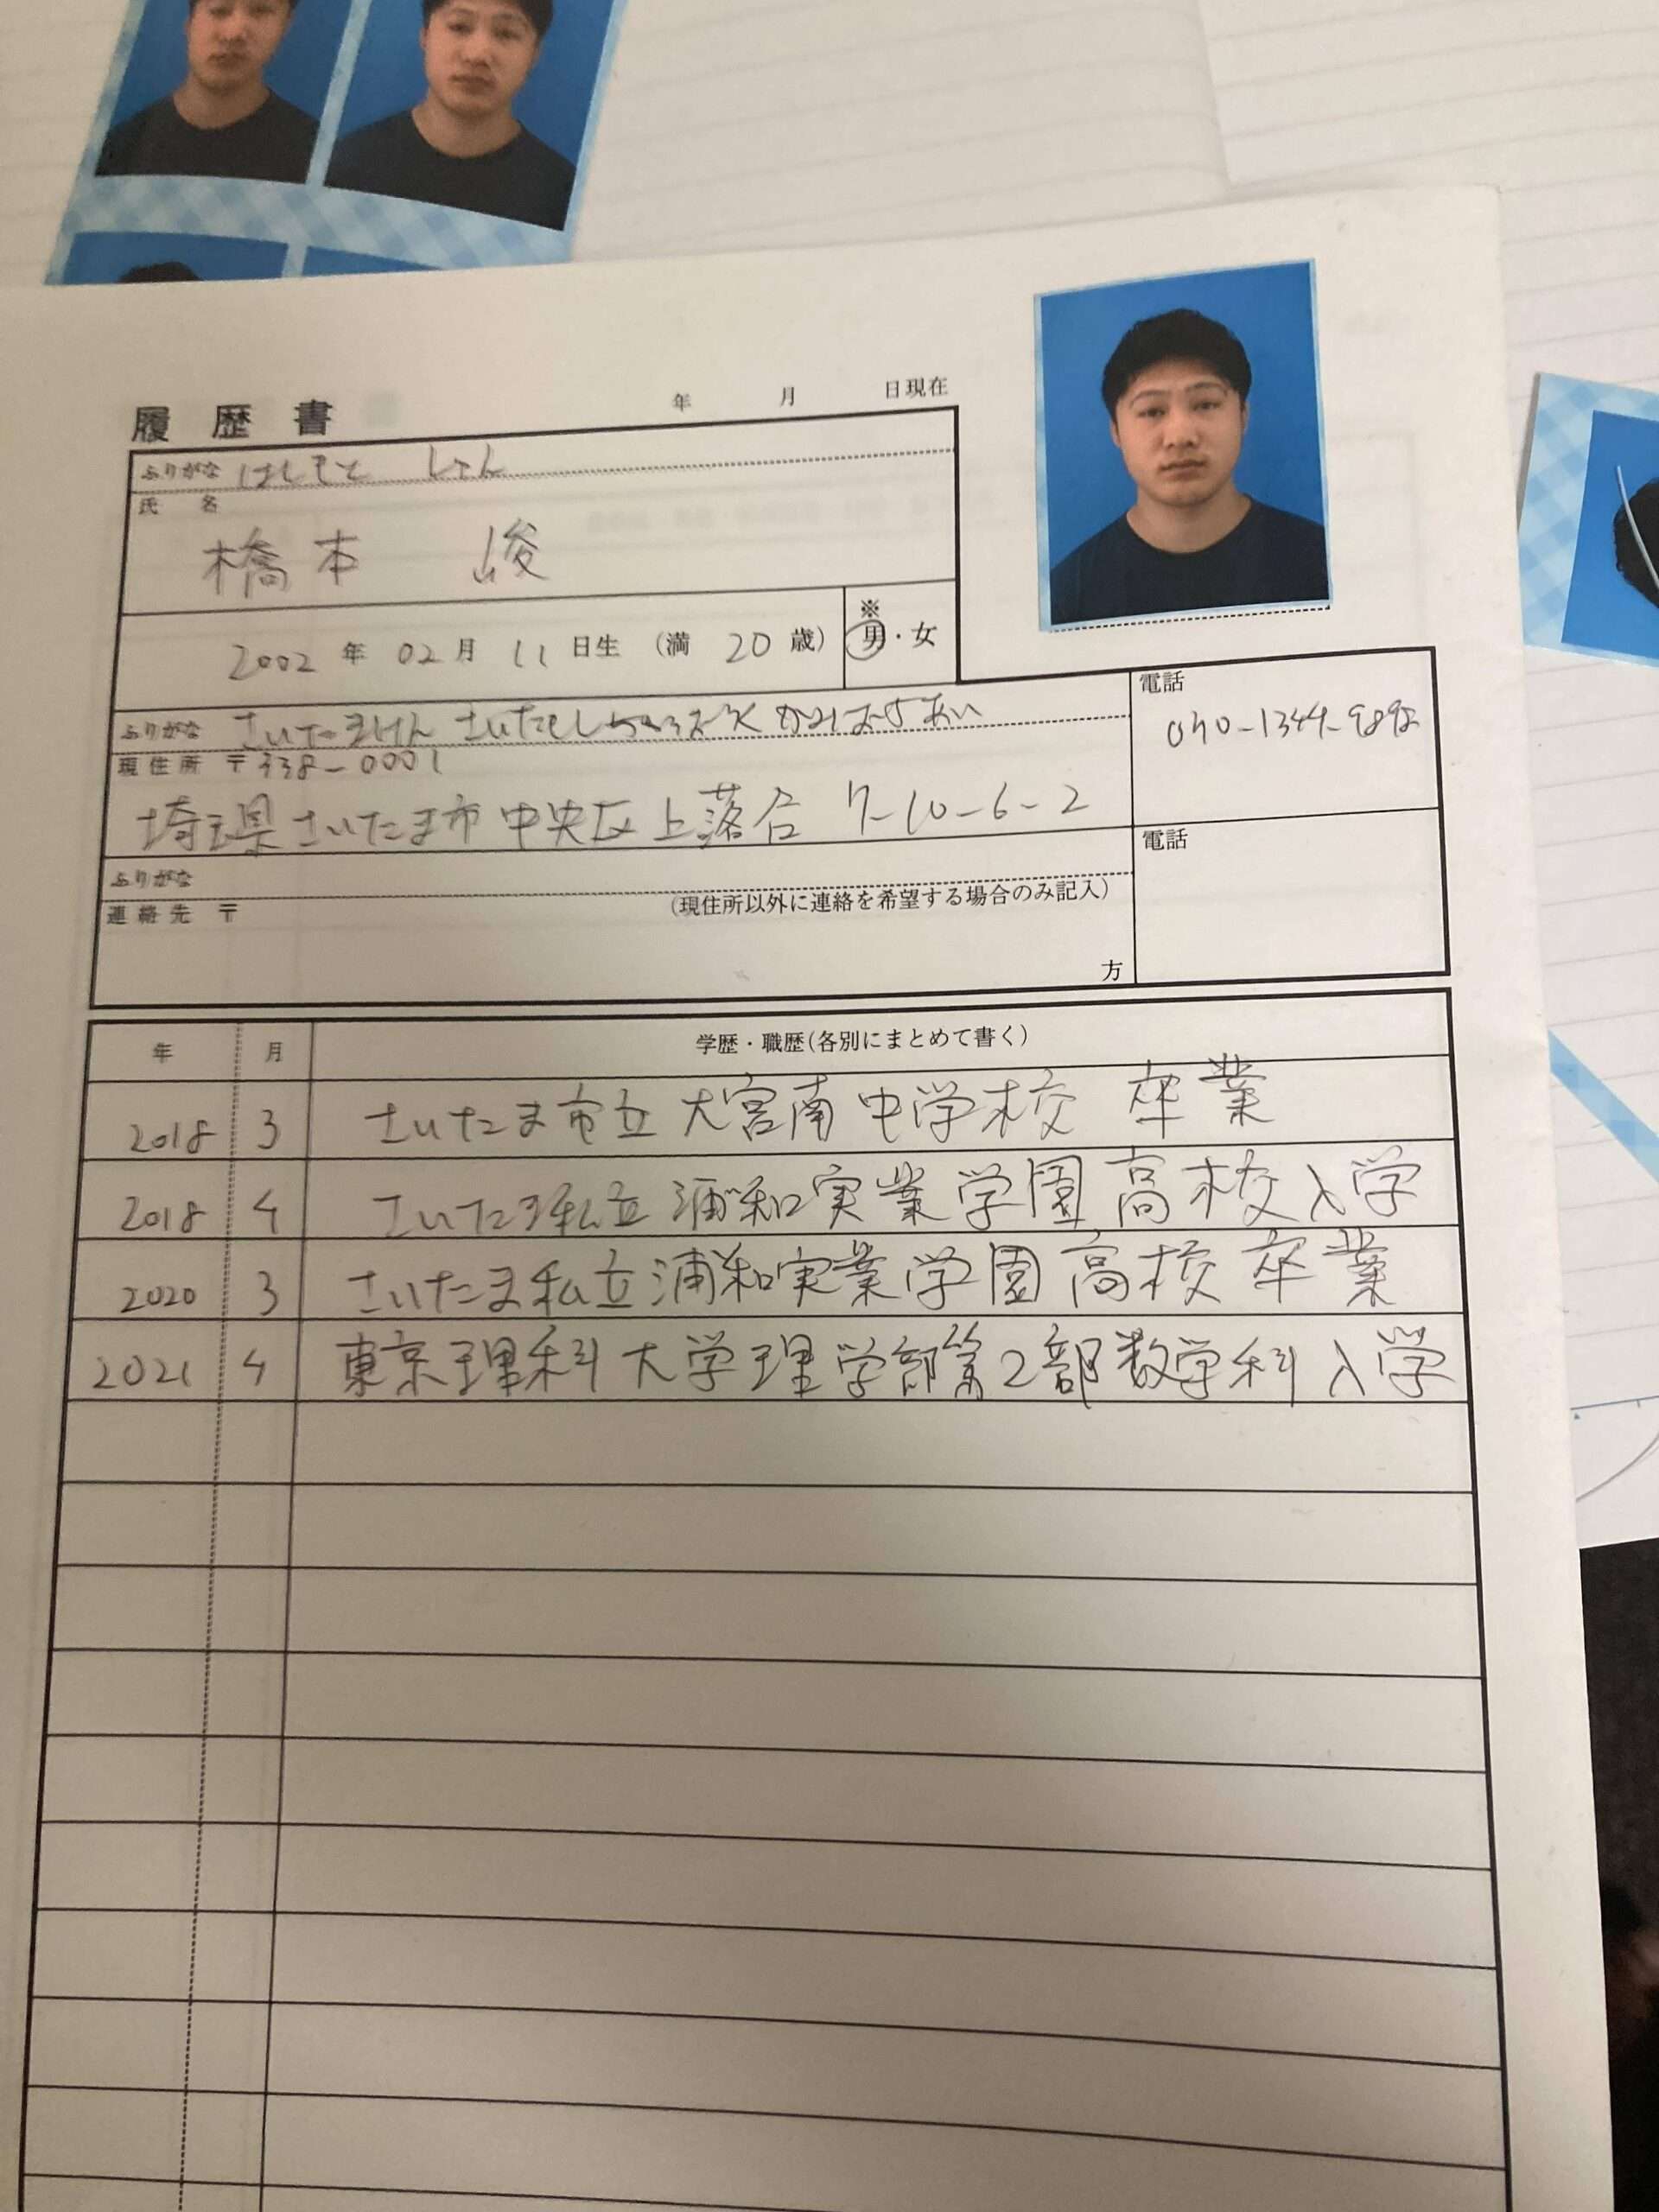 履歴書 年 月 日現在
ふりがな はしもと しゅん
氏名
橋本 峻
※
2002年02月11日生(満20歳) 男・女
ふりがな さいたまけん
電話
現住所 〒338-0001
埼玉県さいたま市中央区上落合 7-10-6-2
電話
ふりがな
連絡先 〒 (現住所以外に連絡を希望する場合のみ記入)
方
年 月 学歴・職歴(各別にまとめて書く)
2018 3 さいたま市立大宮南中学校 卒業
2018 4 さいたま私立浦和実業学園高校入学
2020 3 さいたま私立浦和実業学園高校卒業
2021 4 東京理科大学理学部第2部数学科入学